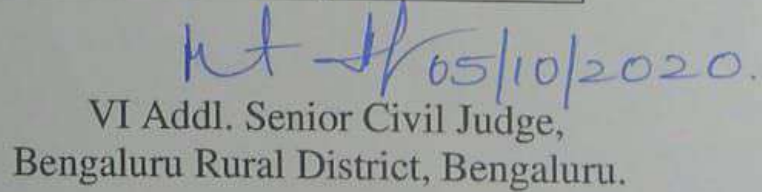 05/10/2020.
VI Addl. Senior Civil Judge,
Bengaluru Rural District, Bengaluru.